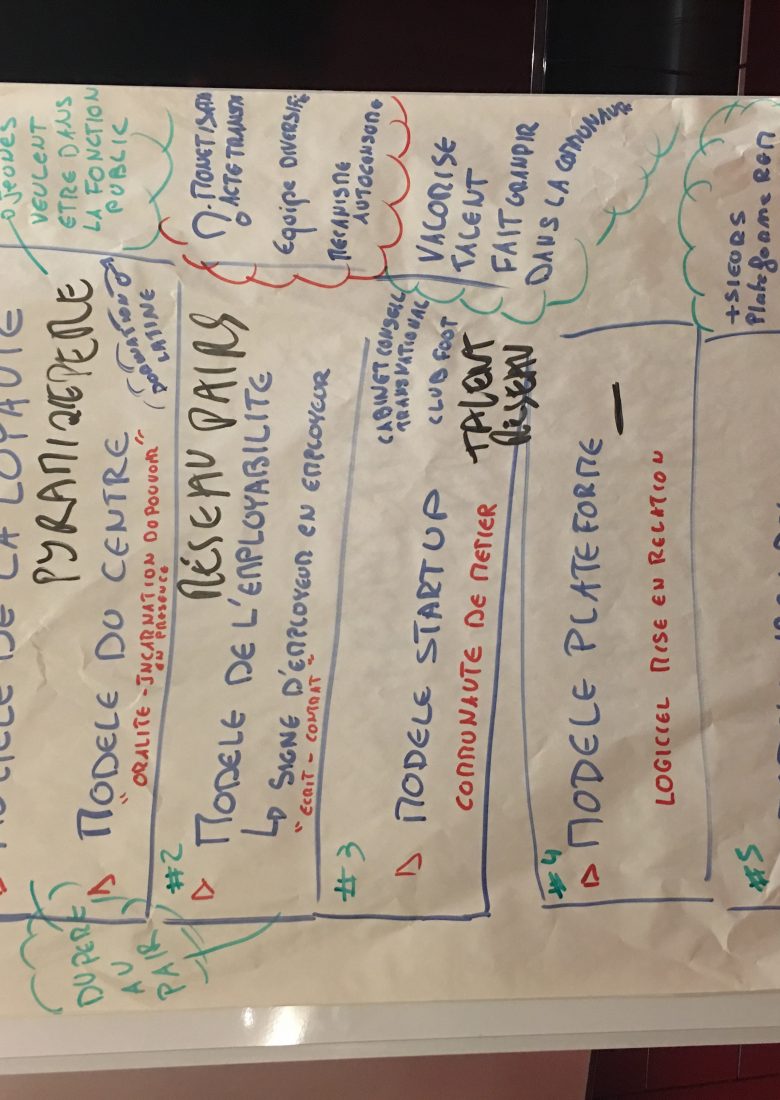 JEUNES
VEULENT
ETRE DANS
LA FONCTION
PUBLIC
DE LA LOYAUTE
PYRAMIDE PERE
MODELE DU CENTRE
"ORALITE - INCARNATION DU POUVOIR"
EN PRESENCE
DU PERE
AU
PAIR
#2
RÉSEAU PAIRS
MODELE DE L'EMPLOYABILITE
SIGNE D'EMPLOYEUR EN EMPLOYEUR
"ECRIT - CONTRAT"
EQUIPE DIVERSIF
MECANISME
#3
MODELE STARTUP
COMMUNAUTE DE METIER
CABINET CONSEIL
TRANSNATIONAL
CLUB FOOT
TALENT
RÉSEAU
VALORISE
TALENT
FAIT GRANDIR
DANS LA COMMUNAUT
#4
MODELE PLATEFORME
LOGICIEL MISE EN RELATION
#5
+SIEURS
Plateforme